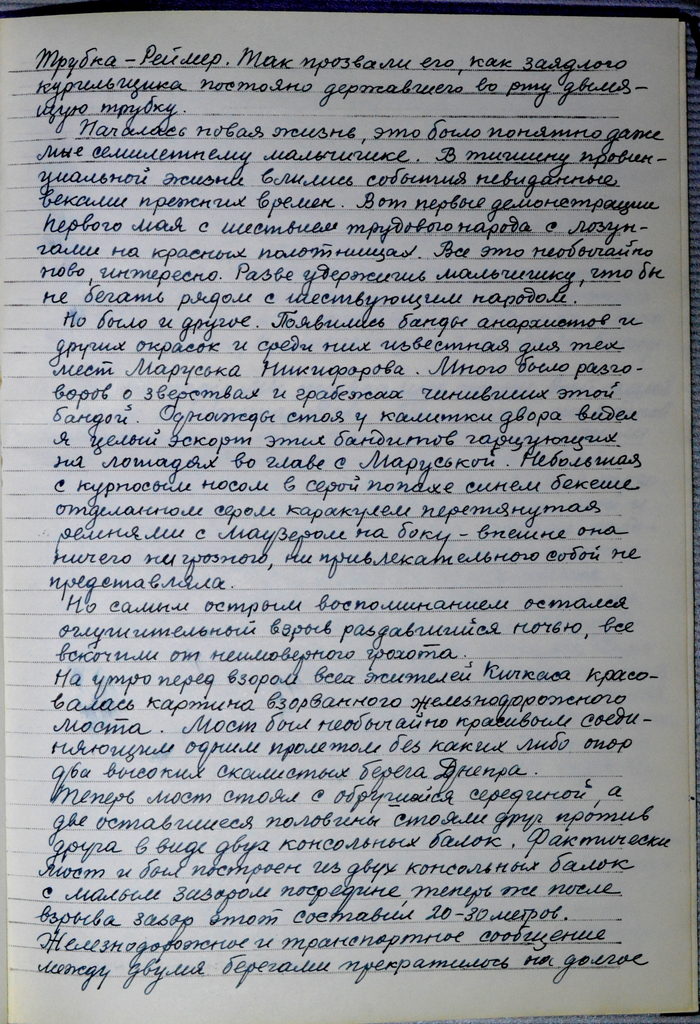 Трубка – Реймер. Так прозвали его, как заядлого
курильщика постояно державшего во рту дымя-
щую трубку.
Началась новая жизнь, это было понятно даже
мне семилетнему мальчишке. В тишину провин-
циальной жизни влились события невиданные
веками прежних времен. Вот первые демонстрации
Первого мая с шествием трудового народа с лозун-
гами на красных полотнищах. Все это необычайно
ново, интересно. Разве удержишь мальчишку, что бы
не бегать рядом с шествующим народом.
Но было и другое. Появились банды анархистов и
других окрасок и среди них известная для тех
мест Маруська Никифорова. Много было разго-
воров о зверствах и грабежах чинивших этой
бандой. Однажды стоя у калитки двора видел
я целый эскорт этих бандитов гарцующих
на лошадях во главе с Маруськой. Небольшая
с курносым носом в серой папахе синем бекеше
отделанном серым каракулем перетянутая
ремнями с маузером на боку – внешне она
ничего ни грозного, ни привлекательного собой не
представляла.
Но самым острым воспоминанием остался
оглушительный взрыв раздавшийся ночью, все
вскочили от неимоверного грохота.
На утро перед взором всех жителей Кичкаса красо-
валась картина взорванного железнодорожного
моста. Мост был необычайно красивым соеди-
няющим одним пролетом без каких либо опор
два высоких скалистых берега Днепра.
Теперь мост стоял с обрушийся серединой, а
две оставшиеся половины стояли друг против
друга в виде двух консольных балок. Фактически
мост и был построен из двух консольных балок
с малым зазором посредине, теперь же после
взрыва зазор этот составил 20-30 метров.
Железнодорожное и транспортное сообщение
между двумя берегами прекратилось на долгое